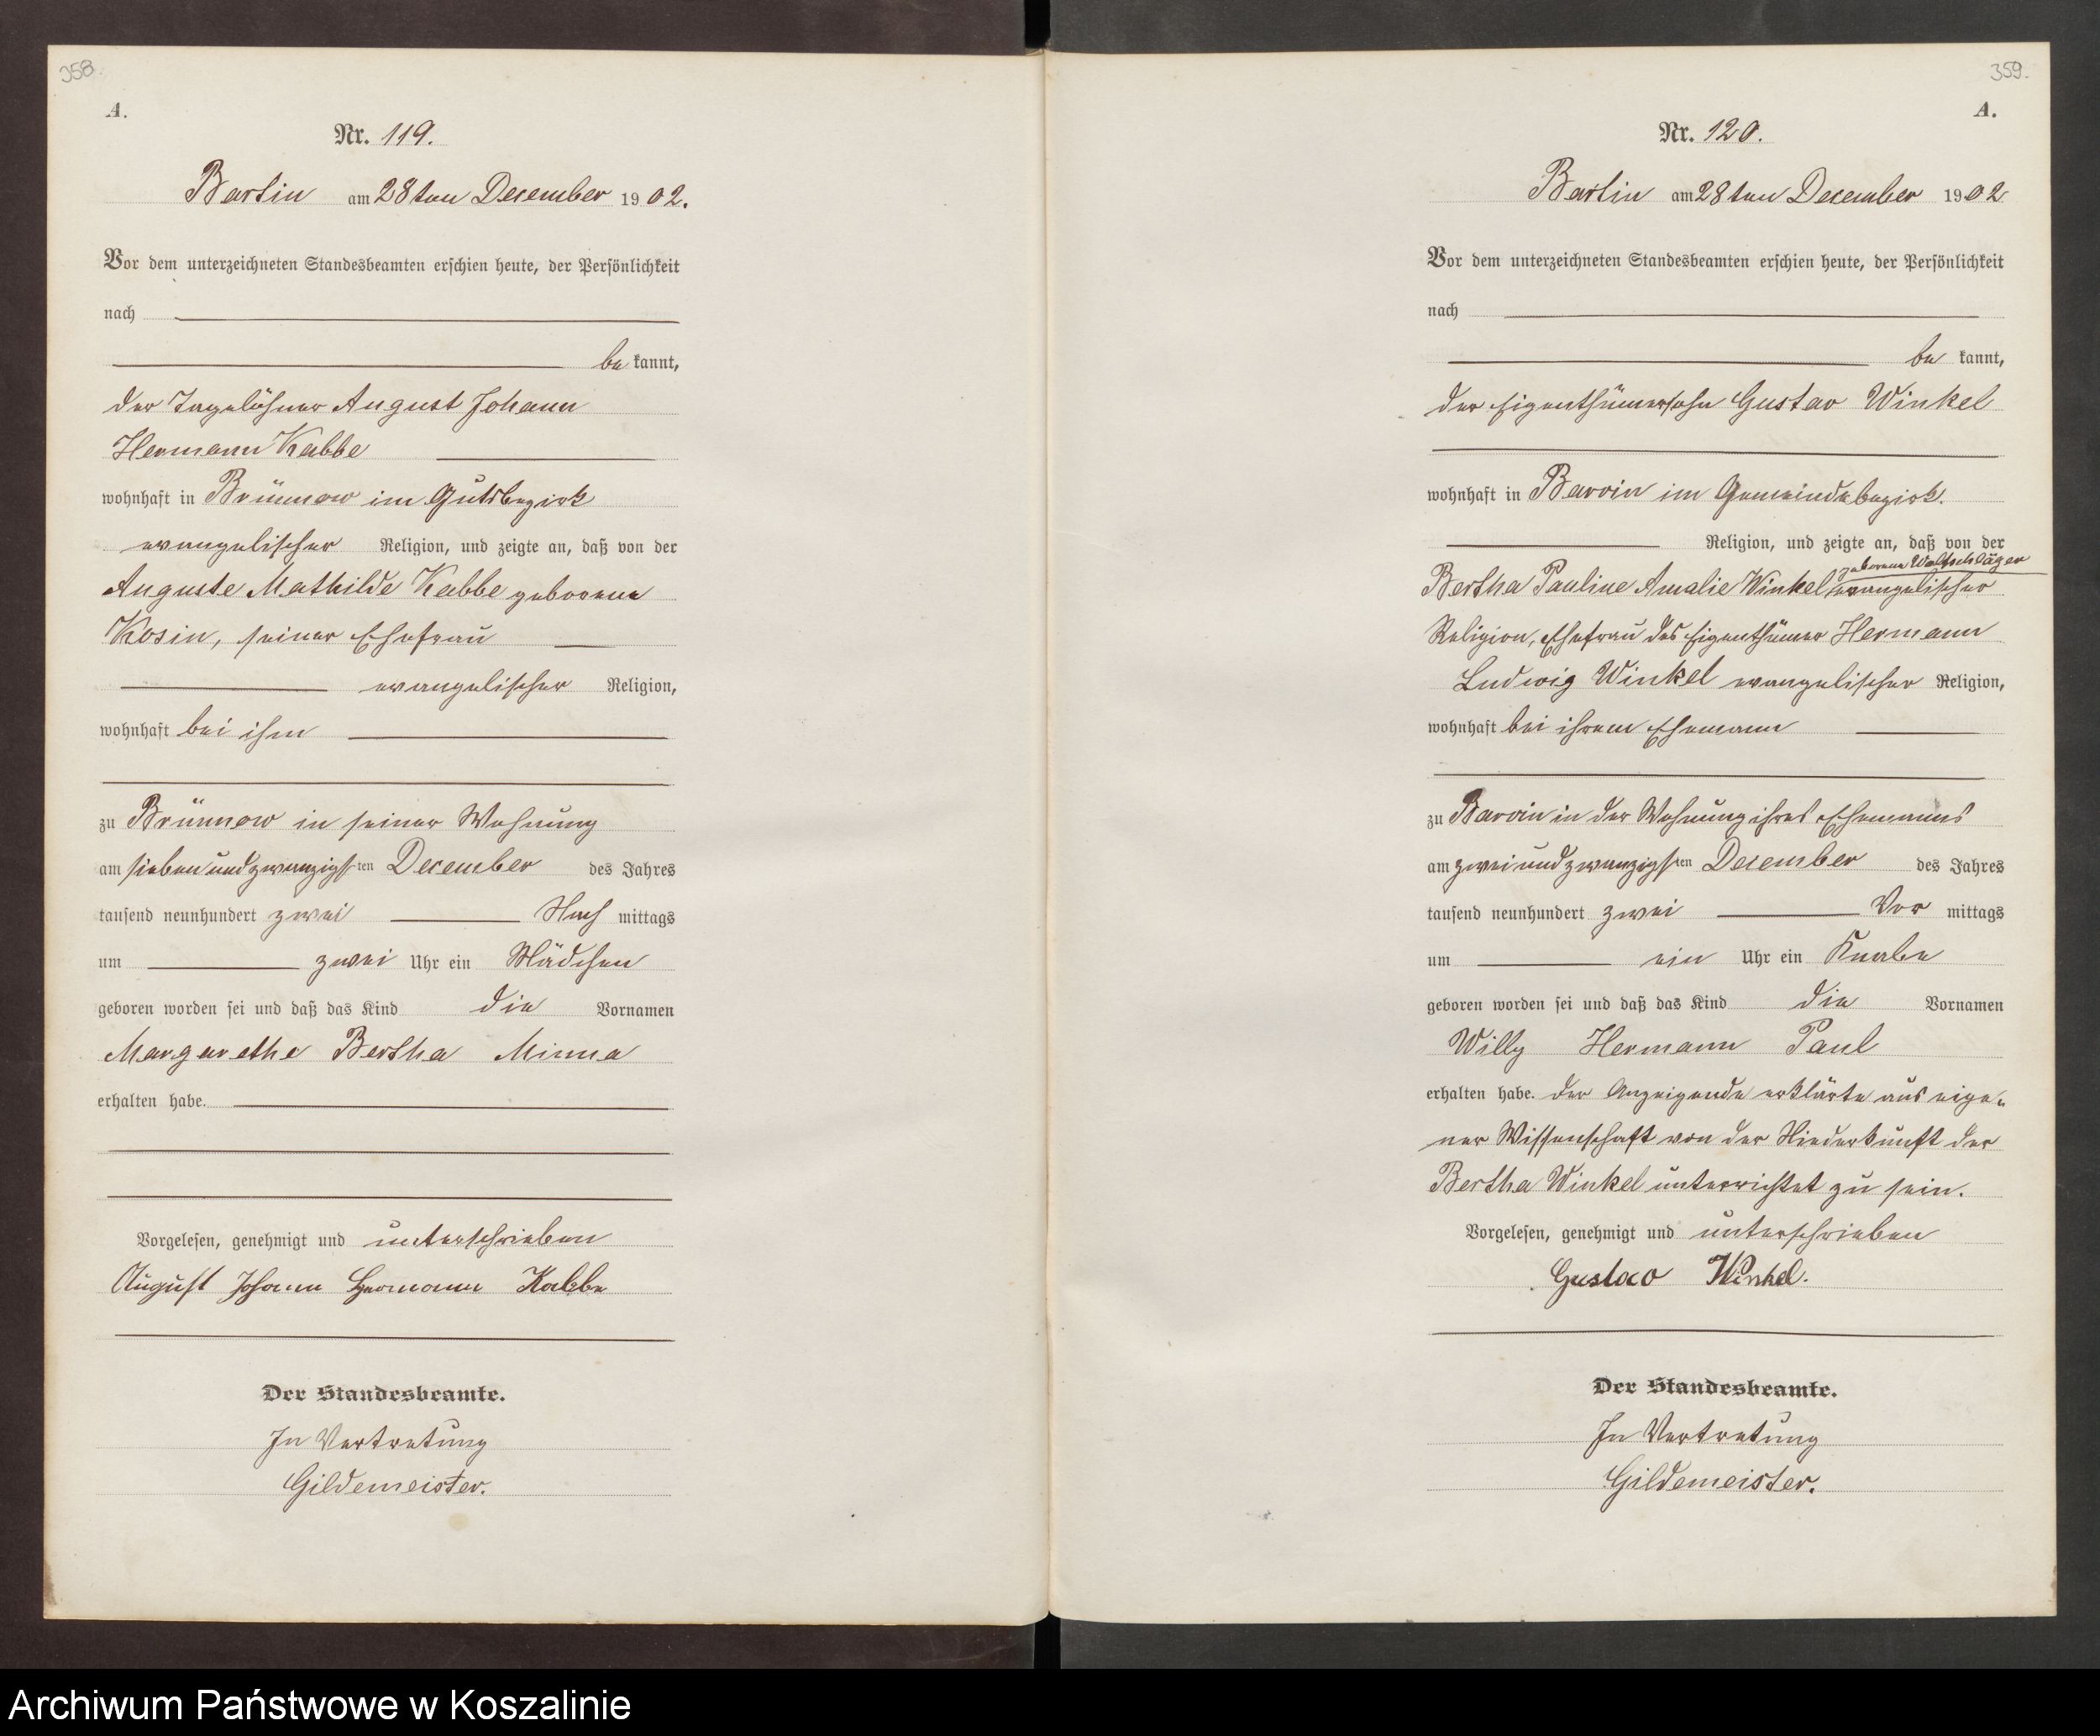 358.
A.
Nr. 119.
Bartin am 28ten December 1902.
Vor dem unterzeichneten Standesbeamten erschien heute, der Persönlichkeit
nach
be kannt,
der Tagelöhner August Johann
Hermann Kabbe
wohnhaft in Brünnow im Gutsbezirk
evangelischer Religion, und zeigte an, daß von der
Auguste Mathilde Kabbe geborene
Kosin, seiner Ehefrau
evangelischer Religion,
wohnhaft bei ihm
zu Brünnow in seiner Wohnung
am siebenundzwanzigsten December des Jahres
tausend neunhundert zwei Nach mittags
um zwei Uhr ein Mädchen
geboren worden sei und daß das Kind die Vornamen
Margarethe Bertha Minna
erhalten habe.
Vorgelesen, genehmigt und unterschrieben
August Johann Hermann Kabbe
Der Standesbeamte.
In Vertretung
Gildemeister.
359.
A.
Nr. 120.
Bartin am 28ten December 1902
Vor dem unterzeichneten Standesbeamten erschien heute, der Persönlichkeit
nach
be kannt,
der Eigenthümersohn Gustav Winkel
wohnhaft in Barvin im Gemeindebezirk.
Religion, und zeigte an, daß von der
geborene Waltschläger
Bertha Pauline Amalie Winkel evangelischer
Religion, Ehefrau des Eigenthümer Hermann
Ludwig Winkel evangelischer Religion,
wohnhaft bei ihrem Ehemann
zu Barvin in der Wohnung ihres Ehemanns
am zweiundzwanzigsten December des Jahres
tausend neunhundert zwei Vor mittags
um ein Uhr ein Knabe
geboren worden sei und daß das Kind die Vornamen
Willy Hermann Paul
erhalten habe. Der Anzeigende erklärte aus eige-
ner Wissenschaft von der Niederkunft der
Bertha Winkel unterrichtet zu sein.
Vorgelesen, genehmigt und unterschrieben
Gustav Winkel.
Der Standesbeamte.
In Vertretung
Gildemeister.
Archiwum Państwowe w Koszalinie